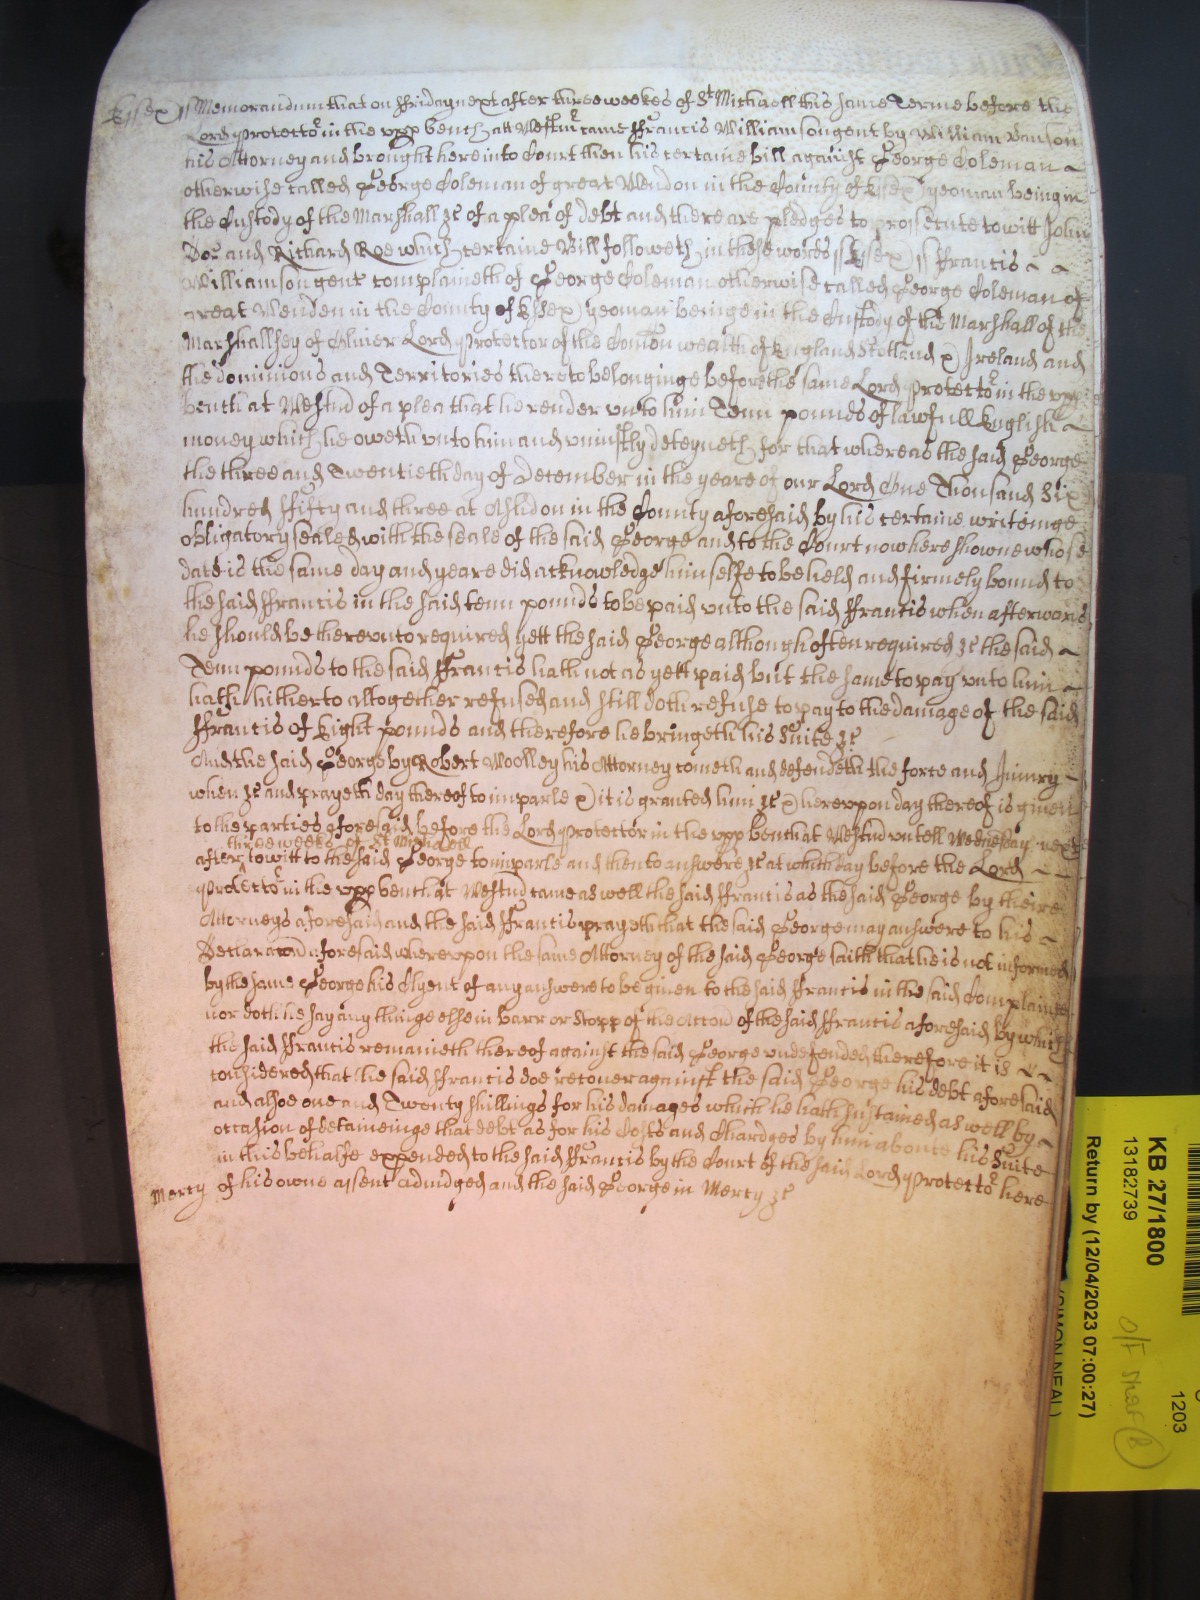 Essex ss Memorandum that on ffriday next after three weekes of St Michaell this same Terme before the
Lord Protector in the upp bench att Westmr came ffrancis Williamson gent by William Banson
his Attorney and brought here into Court then his certaine bill against George Coleman
otherwise called George Coleman of great Wendon in the County of Essex yeoman being in
the Custody of the Marshall &c of a plea of debt and there are pledges to prossecute to witt John
Doe and Richard Roe which certaine Bill followeth in these words ss Essex ss ffrancis
Williamson gent complaineth of George Coleman otherwise called George Coleman of
great Wenden in the County of Essex yeoman beinge in the Custody of the Marshall of the
Marshallsey of Oliver Lord Protector of the Comon wealth of England Scotland & Ireland and
the dominions and Territories thereto belonginge before the same Lord Protector in the upp
bench at Westmr of a plea that he render unto him Tenn pounds of lawfull English
money which he oweth unto him and uniustly deteyneth for that whereas the said George
the three and Twentieth day of December in the yeare of our Lord One Thousand Six
hundred ffifty and three at Ashdon in the County aforesaid by his certaine writeinge
obligatory sealed with the seale of the said George and to the Court now here shewne whose
date is the same day and yeare did acknowledge himselfe to be held and firmely bound to
the said ffrancis in the said tenn pounds to be paid unto the said ffrancis when afterwards
he should be thereunto required yett the said George although often required &c the said
Tenn pounds to the said ffrancis hath not as yett paid but the same to pay unto him
hath hitherto altogether refused and still doth refuse to pay to the damage of the said
ffrancis of Eight pounds and therefore he bringeth his Suite &c
And the said George by Robert Woolley his Attorney cometh and defendeth the force and Iniury
when &c and prayeth day thereof to imparle & it is granted him &c & hereupon day thereof is given
to the parties aforesaid before the Lord Protector in the upp bench at Westmr untell Wednesday next
three weekes of St Michaell
after to witt to the said George to imparle and then to answere &c at which day before the Lord
Protector in the upp bench at Westmr came as well the said ffrancis as the said George by theire
Attorneys aforesaid and the said ffrancis prayeth that the said George may answere to his
Declaracon aforesaid whereupon the same Attorney of the said George saith that he is not informed
by the same George his Clyent of any answere to be given to the said ffrancis in the said Complainte
nor doth he say any thinge else in barr or Stopp of the Accon of the said ffrancis aforesaid by which
the said ffrancis remaineth thereof against the said George undefended therefore it is
considered that the said ffrancis doe recover against the said George his debt aforesaid
and alsoe one and Twenty shillings for his damages which he hath sustained as well by
occasion of detaineinge that debt as for his Costs and Chardges by him aboute his Suite
in this behalfe expended to the said ffrancis by the Court of the said Lord Protector here
Mercy of his owne assent adiudged and the said George in Mercy &c
KB 27/1800
13182739
Return by (12/04/2023 07:00:27)
(SIMON NEAL)
1203